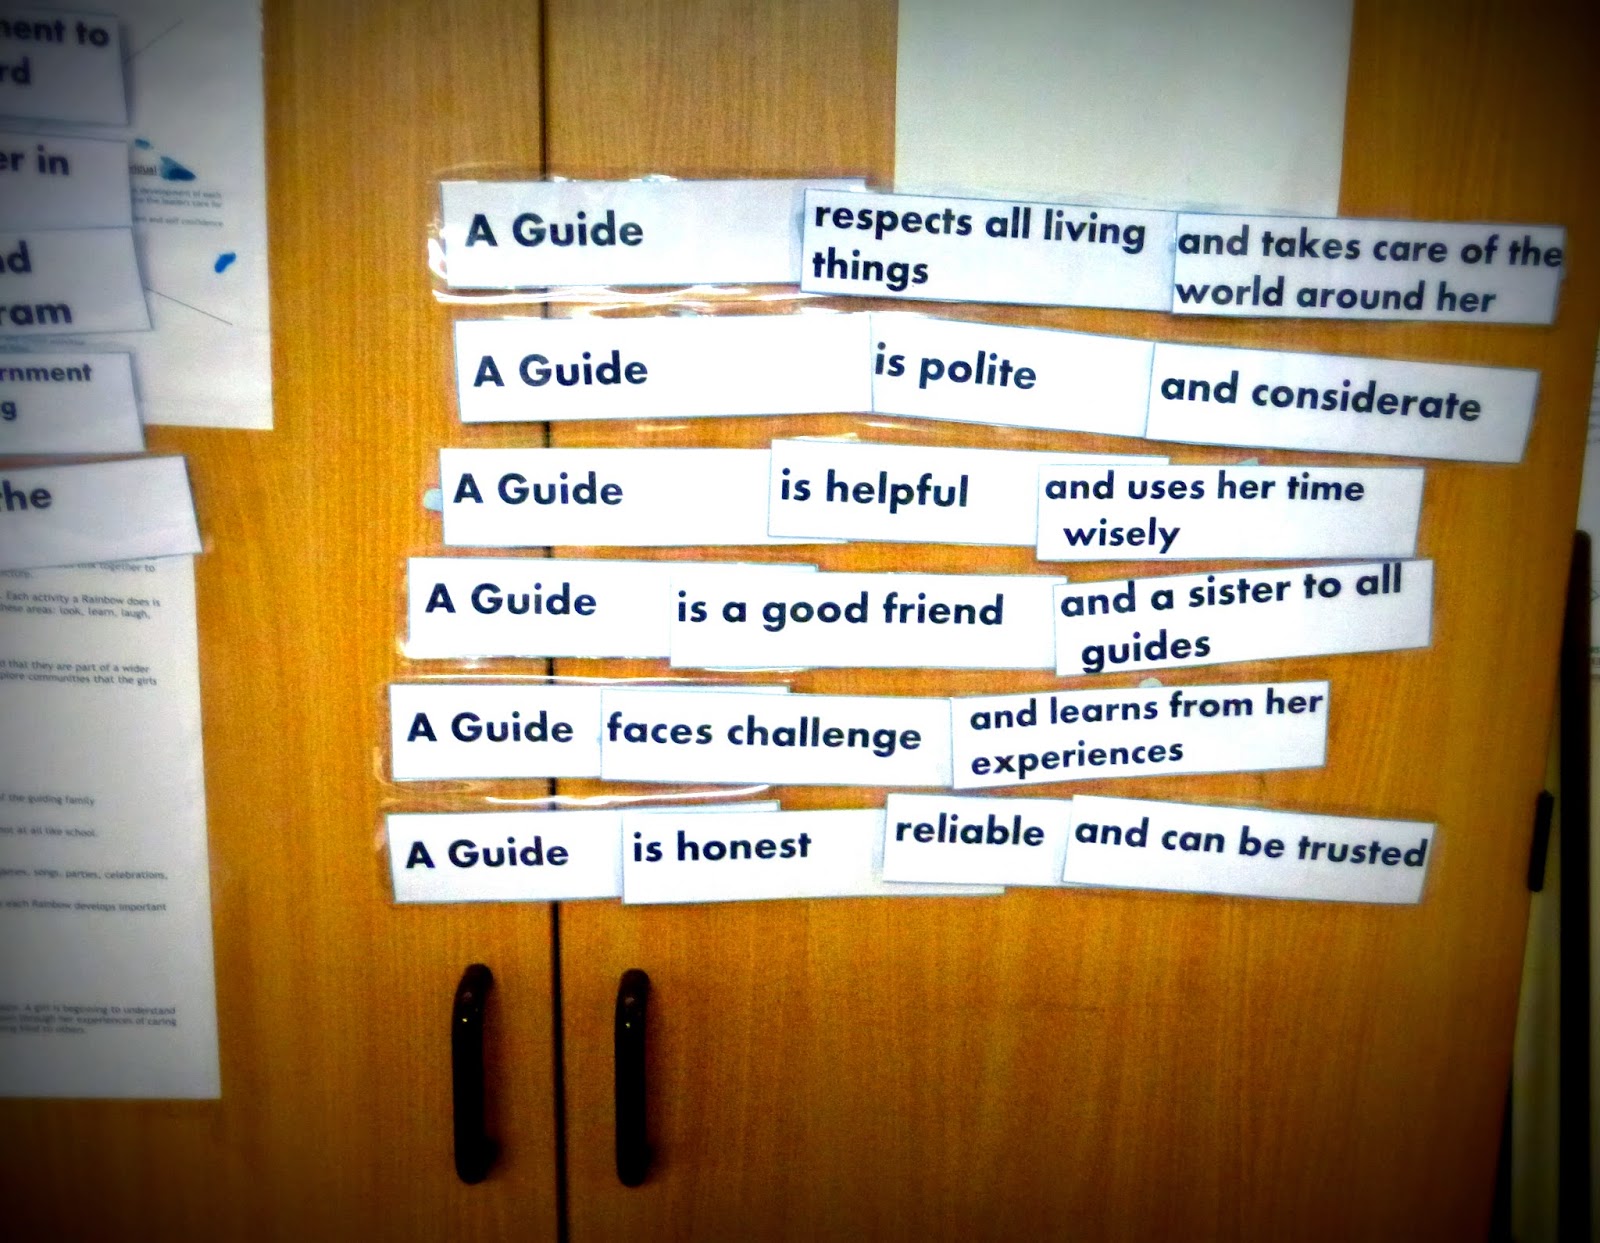 ment to
rd
er in
nd
ram
rnment
g
the
development of each
the leaders care for
and self confidence
together to
Each activity a Rainbow does is
these areas: look, learn, laugh,
that they are part of a wider
explore communities that the girls
of the guiding family
not at all like school.
games, songs, parties, celebrations,
each Rainbow develops important
A girl is beginning to understand
through her experiences of caring
being kind to others.
A Guide respects all living things and takes care of the world around her
A Guide is polite and considerate
A Guide is helpful and uses her time wisely
A Guide is a good friend and a sister to all guides
A Guide faces challenge and learns from her experiences
A Guide is honest reliable and can be trusted